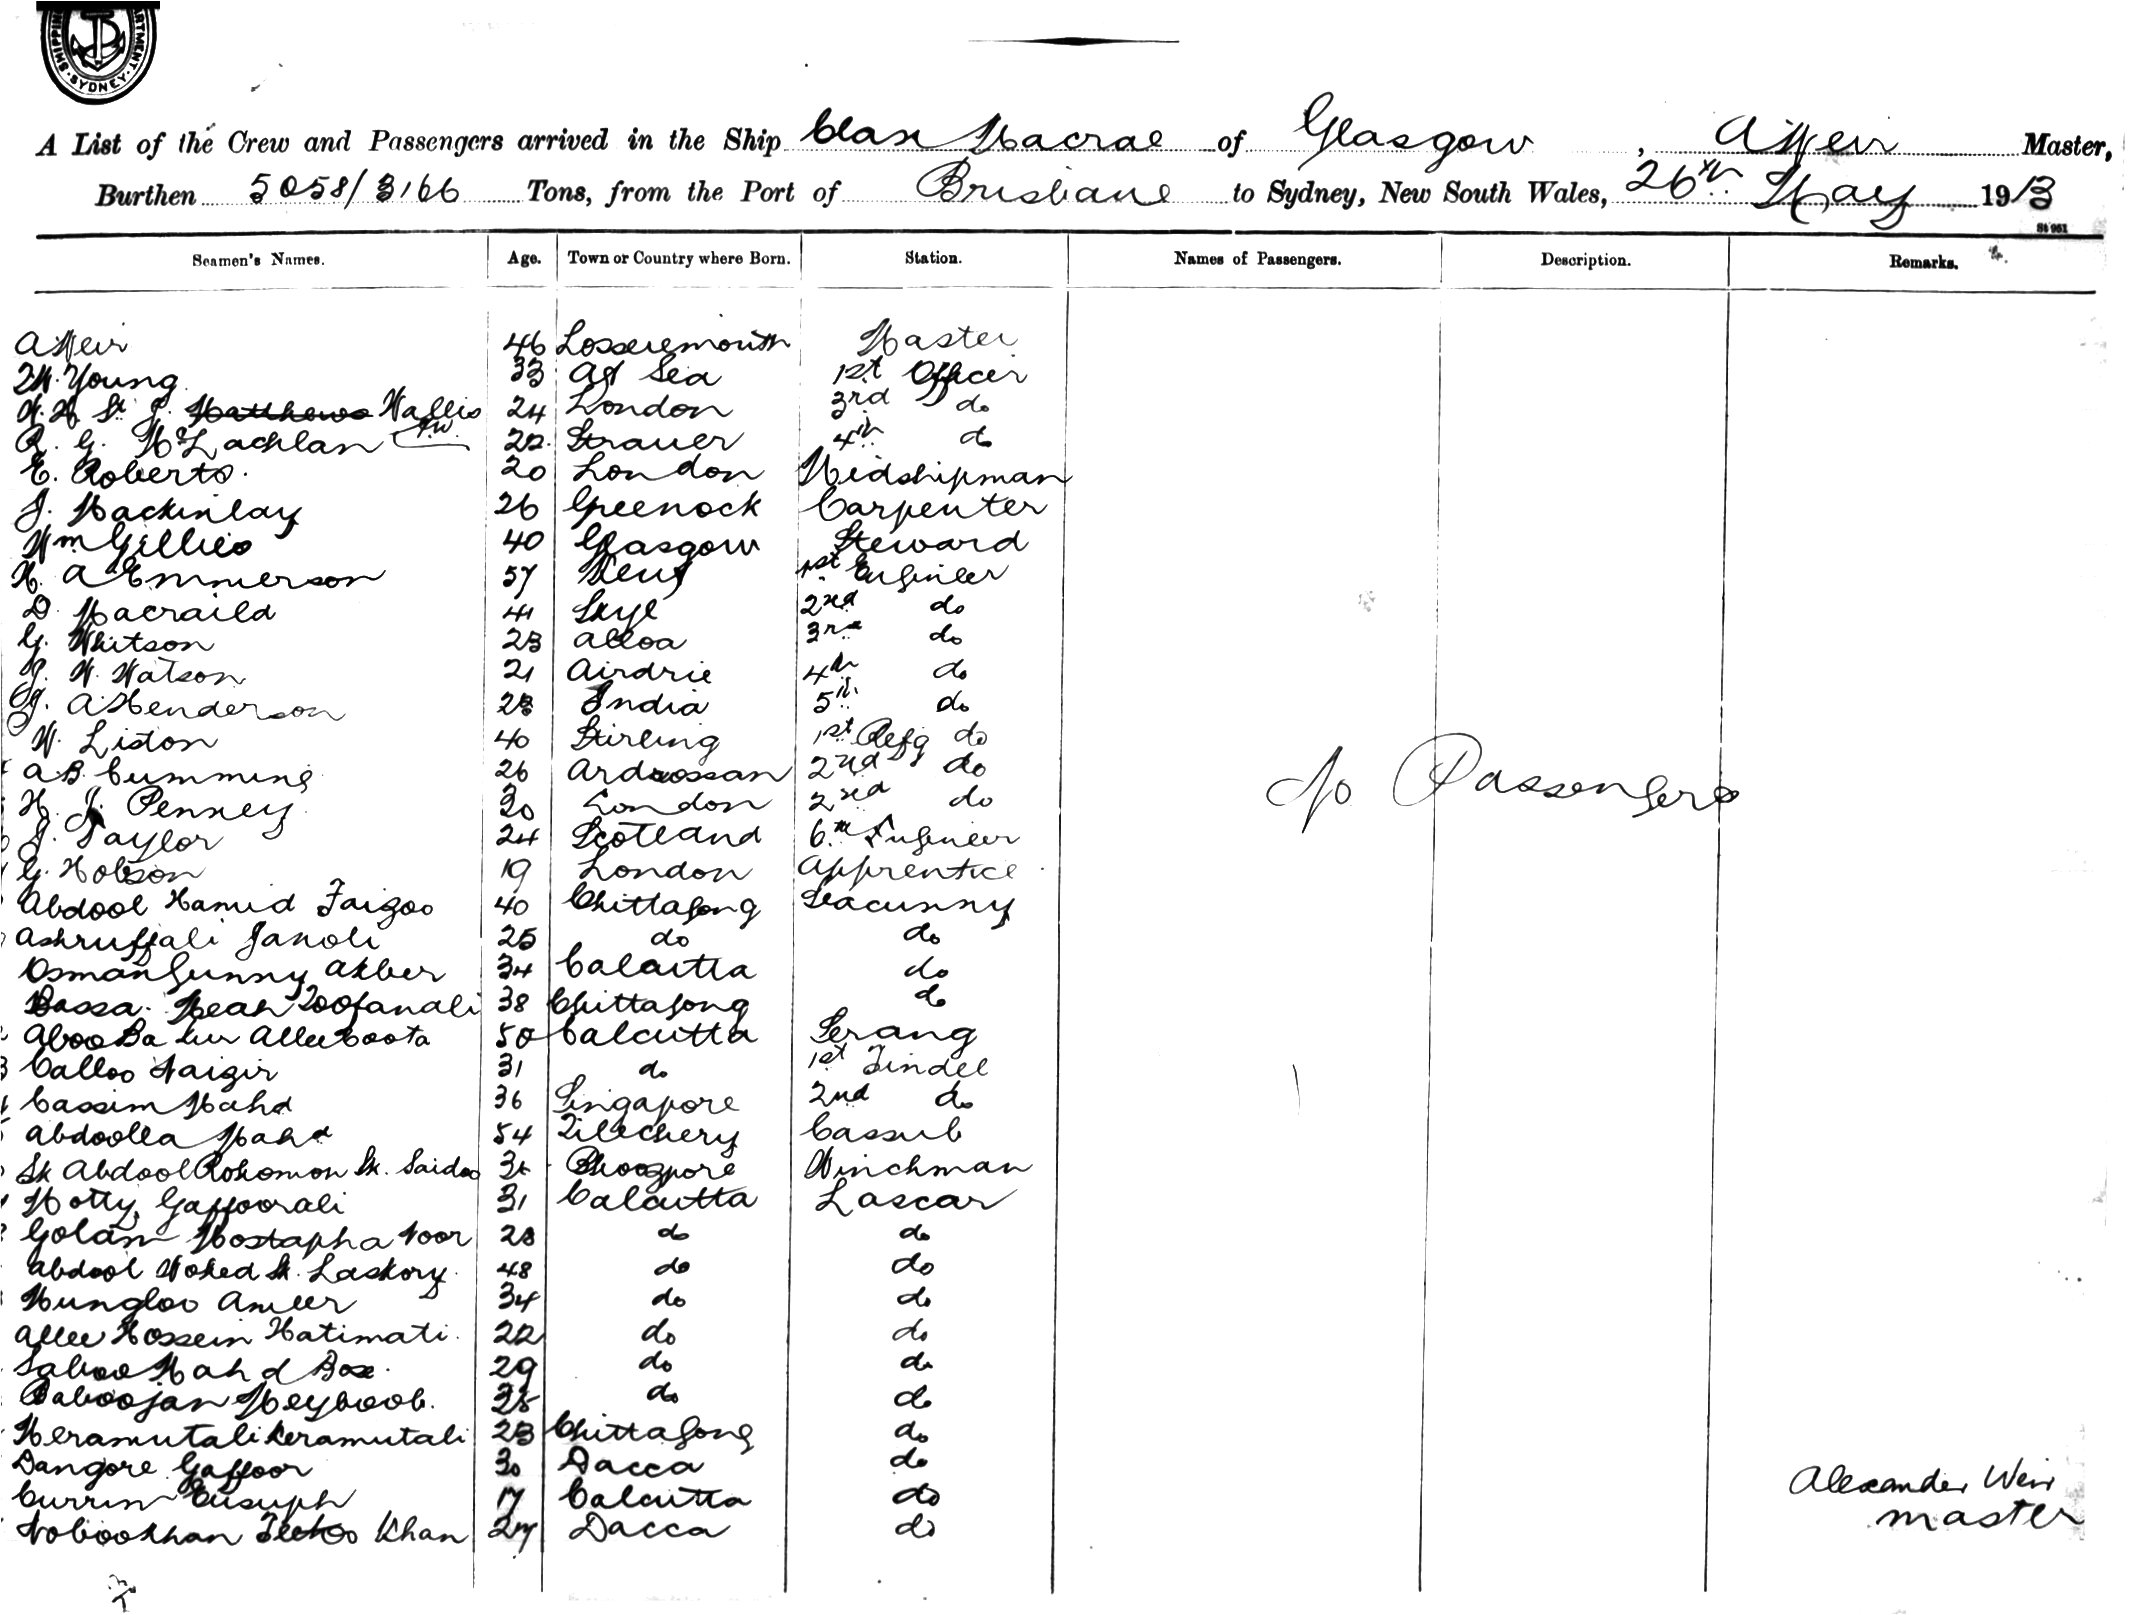 SHIPPING DEPARTMENT SYDNEY
A List of the Crew and Passengers arrived in the Ship Clan Macrae of Glasgow, A Weir Master,
Burthen 5058/3166 Tons, from the Port of Brisbane to Sydney, New South Wales, 26th May 1913
St 961
Seamen's Names. Age. Town or Country where Born. Station. Names of Passengers. Description. Remarks.
A Weir 46 Lossiemouth Master
Young 33 At Sea 1st Officer
W. H St J. Matthews Wallis 24 London 3rd do
R. G. McLachlan A.W. 22 Stranraer 4th do
E. Roberts. 20 London Midshipman
J. Mackinlay 26 Greenock Carpenter
Wm Gillies 40 Glasgow Steward
H. A Emmerson 57 Kent 1st Engineer
D. Macraild 41 Skye 2nd do
G. Whitson 23 Alloa 3rd do
J. W. Watson 21 Airdrie 4th do
J. A Henderson 23 India 5th do
W. Liston 40 Stirling 1st Refg do
A. B. Cumming 26 Ardrossan 2nd do
No Passengers
H. J. Penney 30 London 2nd do
J. Taylor 24 Scotland 6th Engineer
G. Hobson 19 London Apprentice
Abdool Hamid Faizoo 40 Chittagong Seacunny
Ashruffali Janoli 25 do do
Osman Gunny Akber 34 Calcutta do
Bassa Meah Toofanali 38 Chittagong do
Aboo Ba ker Allee Boota 50 Calcutta Serang
Calloo Naigir 31 do 1st Tindel
Cassim Mahd 36 Singapore 2nd do
Abdoolla Mahd 54 Tilechery Cassub
Sk Abdool Rohomon Sk. Saidoo Winchman
Motty Gaffoorali 31 Calcutta Lascar
Golam Mostapha Noor 28 do do
Abdool Wohed Sk. Laskory 48 do do
Mungloo Ameer 34 do do
Allee Hossein Hatimati 22 do do
Saboo Mahd Box. 29 do do
Baboojan Meyboob. 35 do do
Keramutali Keramutali 23 Chittagong do
Dangore Gaffoor 30 Dacca do
Currim Eusuph 17 Calcutta do
Nobookhan Khan 27 Dacca do
Alexander Weir
Master